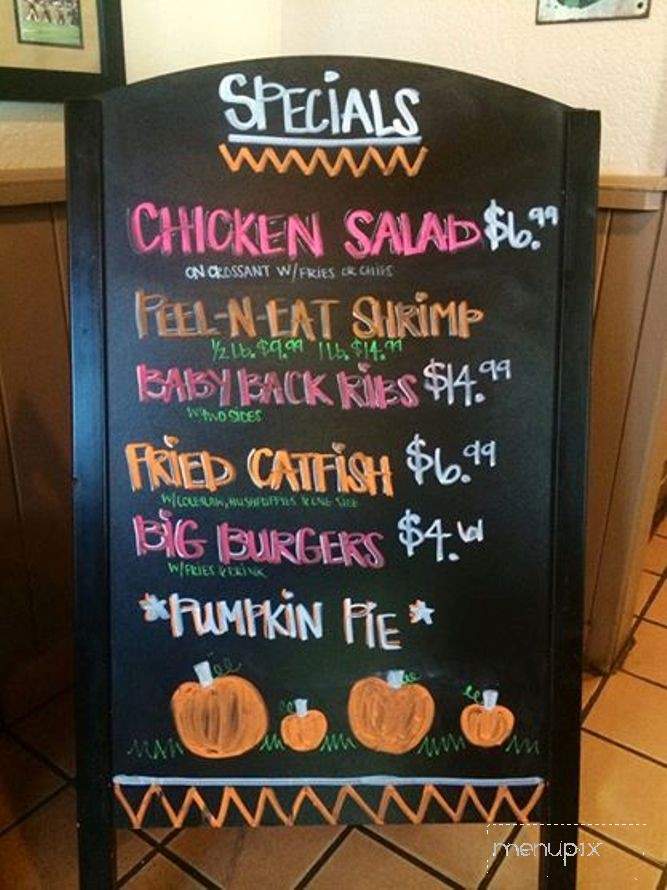 SPECIALS
CHICKEN SALAD $6.99
ON CROSSANT W/FRIES OR CHIPS
PEEL-N-EAT SHRIMP
1/2 Lb. $9.99 1 Lb. $14.99
BABY BACK RIBS $14.99
W/TWO SIDES
FRIED CATFISH $6.99
W/COLESLAW, HUSHPUPPIES & ONE SIDE
BIG BURGERS $4.61
W/FRIES & DRINK
*PUMPKIN PIE*
menupix